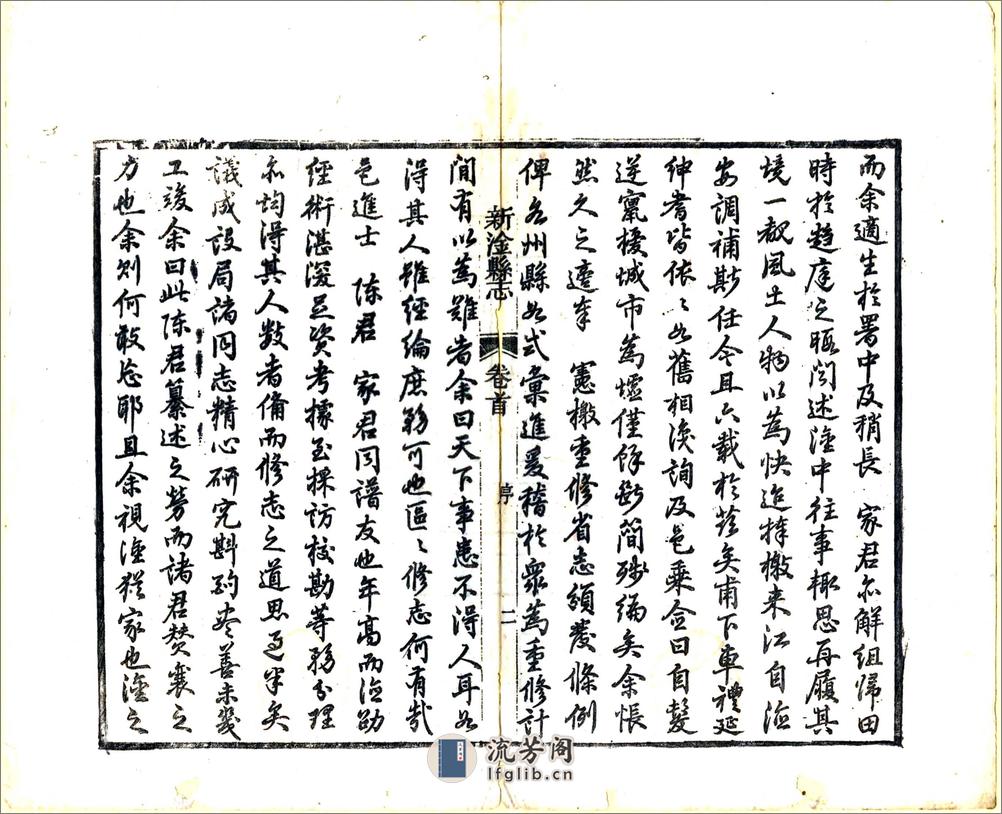 而余適生於署中及稍長　家君亦解組歸田
時於趨庭之暇閒述淦中往事輒思再履其
境一覩風土人物以為快迨捧檄来江自
安調補斯任今且六載於茲矣甫下車禮延
紳耆皆依〻如舊相洟詢及邑乘僉曰自髮
逆竄擾城市為墟僅餘斷簡殘編矣余悵
然久之適奉　憲檄重修省志頒發條例
俾各州縣如式彙進爰稽於衆為重修計
新淦縣志　卷首　序　二
間有以為難者余曰天下事患不得人耳如
得其人雖經綸庶務可也區〻修志何有哉
邑進士　陳君　家君同譜友也年高而德劭
經術湛深足資考據至採訪校勘等務分理
亦均得其人數者備而修志之道思過半矣
議成設局諸同志精心研究斟酌盡善未幾
工竣余曰此陳君纂述之勞而諸君贊襄之
力也余則何敢忘耶且余視淦猶家也淦之
流芳阁
lfglib.cn